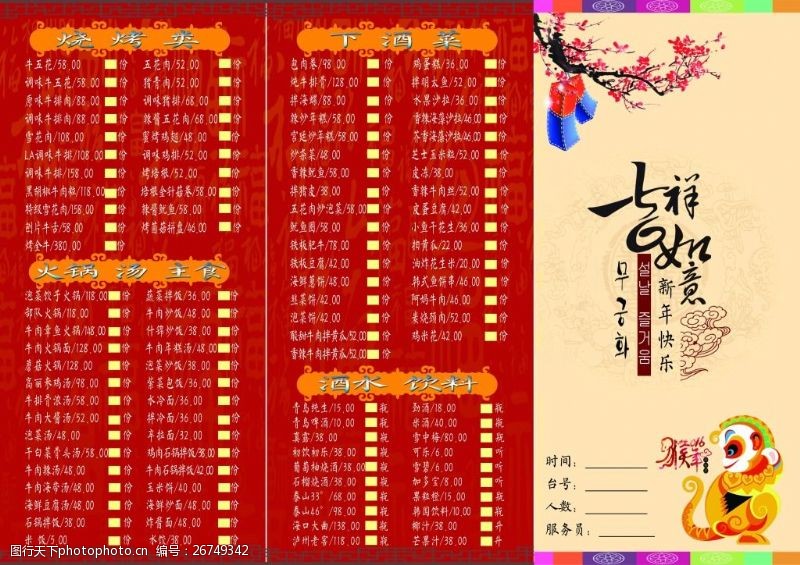 烧烤类
牛五花/58.00 份 五花肉/52.00 份
调味牛五花/58.00 份 猪青肉/52.00 份
原味牛排肉/88.00 份 调味猪排/68.00 份
调味牛排肉/88.00 份 辣酱五花肉/68.00 份
雪花肉/108.00 份 蜜烤鸡翅/48.00 份
LA调味牛排/108.00 份 调味鸡排/52.00 份
调味牛排/158.00 份 烤培根/52.00 份
黑胡椒牛肉粒/118.00 份 培根金针菇卷/58.00 份
特级雪花肉/158.00 份 辣酱鱿鱼/58.00 份
刨片牛舌/58.00 份 烤菌菇拼盘/46.00 份
烤全牛/380.00 份
火锅 汤 主食
泡菜饺子火锅/118.00 份 蔬菜拌饭/36.00 份
部队火锅/118.00 份 牛肉炒饭/48.00 份
牛肉章鱼火锅/148.00 份 什锦炒饭/38.00 份
牛肉火锅面/128.00 份 牛肉年糕汤/48.00 份
蘑菇火锅/128.00 份 泡菜炒饭/38.00 份
高丽参鸡汤/98.00 份 紫菜包饭/36.00 份
牛排骨浓汤/58.00 份 水冷面/36.00 份
牛肉大酱汤/52.00 份 拌冷面/36.00 份
泡菜汤/48.00 份 辛拉面/32.00 份
干白菜骨头汤/58.00 份 鸡肉石锅拌饭/38.00 份
牛肉辣汤/48.00 份 牛肉石锅拌饭/42.00 份
牛肉海带汤/48.00 份 玉米饼/40.00 份
海鲜豆腐汤/48.00 份 海鲜炒面/48.00 份
石锅拌饭/38.00 份 炸酱面/48.00 份
米饭/5.00 份 水饺/38.00 份
下酒菜
包肉卷/98.00 份 鸡蛋糕/36.00 份
炖牛排骨/128.00 份 拌明太鱼/52.00 份
拌海螺/88.00 份 水果沙拉/36.00 份
辣炒年糕/58.00 份 香辣海藻沙拉/46.00 份
宫廷炒年糕/58.00 份 芥香海藻沙拉/46.00 份
炒杂菜/48.00 份 芝士玉米粒/52.00 份
香辣鱿鱼/58.00 份 皮冻/38.00 份
拌猪皮/38.00 份 香辣牛肉丝/52.00 份
五花肉炒泡菜/58.00 份 皮蛋豆腐/42.00 份
鱿鱼圈/58.00 份 小鱼干花生/36.00 份
铁板肥牛/78.00 份 拍黄瓜/22.00 份
铁板豆腐/42.00 份 油炸花生米/20.00 份
海鲜葱饼/48.00 份 韩式鱼饼串/46.00 份
韭菜饼/42.00 份 阿妈牛肉/46.00 份
泡菜饼/42.00 份 美烧猪肉/52.00 份
酸甜牛肉拌黄瓜/52.00 份 鸡米花/42.00 份
香辣牛肉拌黄瓜/52.00 份
酒水 饮料
青岛纯生/15.00 瓶 劲酒/18.00 瓶
青岛啤酒/10.00 瓶 米酒/40.00 瓶
真露/38.00 瓶 雪中梅/80.00 瓶
初饮初乐/38.00 瓶 可乐/6.00 听
葡萄柚烧酒/38.00 瓶 雪碧/6.00 听
石榴烧酒/38.00 瓶 加多宝/8.00 听
泰山33°/68.00 瓶 果粒橙/15.00 瓶
泰山46°/98.00 瓶 韩国饮料/10.00 听
海口大曲/138.00 瓶 椰汁/38.00 升
泸州老窖/118.00 瓶 芒果汁/38.00 升
吉祥如意
新年快乐
설날 즐거움
무궁화
2016
猴年
时间:
台号:
人数:
服务员:
图行天下photophoto.cn 编号:26749342